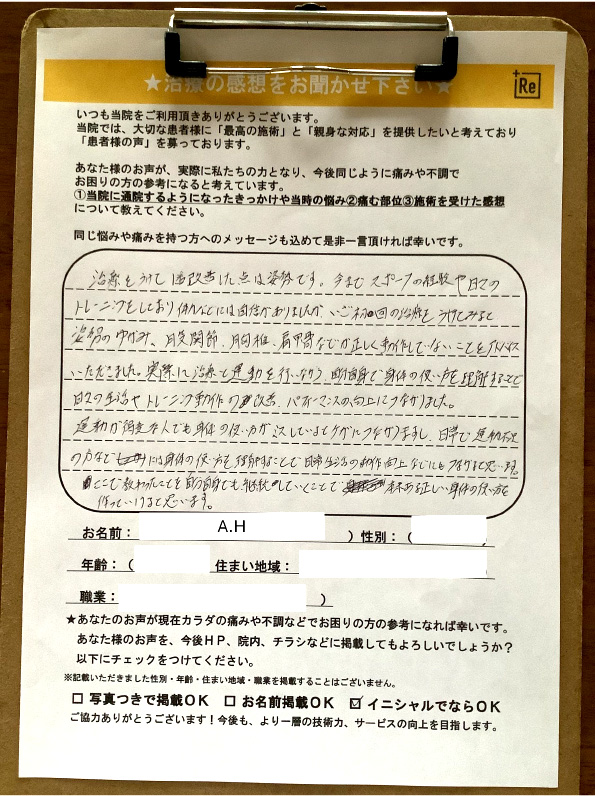 ★治療の感想をお聞かせ下さい★
+Re
いつも当院をご利用頂きありがとうございます。
当院では、大切な患者様に「最高の施術」と「親身な対応」を提供したいと考えており
「患者様の声」を募っております。
あなた様のお声が、実際に私たちの力となり、今後同じように痛みや不調で
お困りの方の参考になると考えています。
①当院に通院するようになったきっかけや当時の悩み②痛む部位③施術を受けた感想
について教えてください。
同じ悩みや痛みを持つ方へのメッセージも込めて是非一言頂ければ幸いです。
治療をうけて改善した点は姿勢です。今までスポーツの経験や日々の
トレーニングをしており体力などには自信がありましたが、初回の治療をうけてみると
姿勢のゆがみ、股関節、胸椎、肩甲骨などが正しく動作していないことをアドバイス
いただきました。実際に治療と運動を行いながら、自分自身で身体の使い方を理解することで
日々の生活やトレーニング動作の改善、パフォーマンスの向上につながりました。
運動が得意な人でも身体の使い方がミスしているとケガにつながりますし、日常で運動不足
の方などには身体の使い方を理解することで日常生活の動作向上などにもつながると思います。
ここで教わったことを自分自身でも継続していくことで正しい身体の使い方を
作っていけると思います。
お名前： A.H ）性別：（
年齢：（ 住まい地域：
職業： ）
★あなたのお声が現在カラダの痛みや不調などでお困りの方の参考になれば幸いです。
あなた様のお声を、今後ＨＰ、院内、チラシなどに掲載してもよろしいでしょうか？
以下にチェックをつけてください。
※記載いただきました性別・年齢・住まい地域・職業を掲載することはございません。
☐ 写真つきで掲載ＯＫ ☐ お名前掲載ＯＫ ☑ イニシャルでならＯＫ
ご協力ありがとうございます！今後も、より一層の技術力、サービスの向上を目指します。